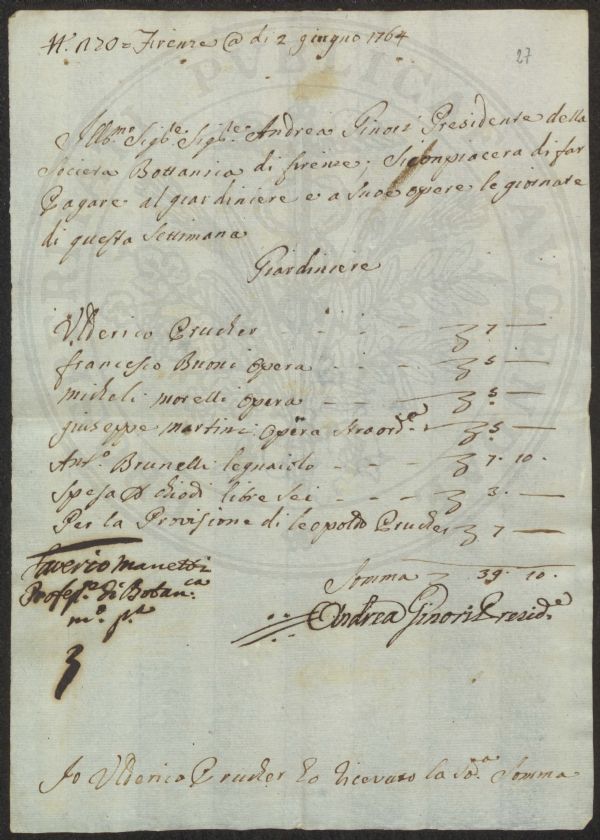 N.º 120 = Firenze @ di 2 giugno 1764
27
Illb.mo Sig.re Sig.re Andrea Ginori Presidente della
Societa Bottanica di firenze; Si conpiacera di far
Pagare al giardiniere e a Sue opere le giornate
di questa Settimana
Giardiniere
Ulderico Prucher - - - - 7 —
francesco Buoni opera - - - 5 —
micheli morelli opera - - 5 —
giuseppe martini opera Straord.a - 5 —
Ant.o Brunelli legnaiolo - - - 7. 10.
Spesa di chiodi libre Sei - - - 3. —
Per la Provisione di leopoldo Prucher 7 —
Somma 39. 10.
Saverio Manetti
Profes.re di Botan.ca
m.o p.a
Andrea Ginori Presid.e
Io Ulderico Prucher ho ricevuto la Sod.a Somma
PUBLICA